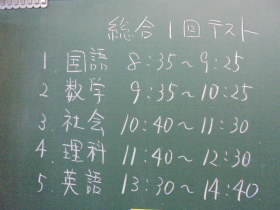 総合1回テスト
1 国語 8:35～9:25
2 数学 9:35～10:25
3 社会 10:40～11:30
4. 理科 11:40～12:30
5. 英語 13:30～14:40